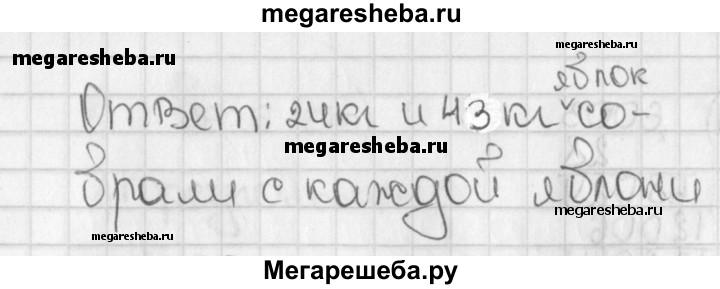 megaresheba.ru
megaresheba.ru
megaresheba.ru
яблок
Ответ: 24кг и 43кг ˅ со-
megaresheba.ru
брали с каждой яблони
megaresheba.ru
megaresheba.ru
Мегарешеба.ру